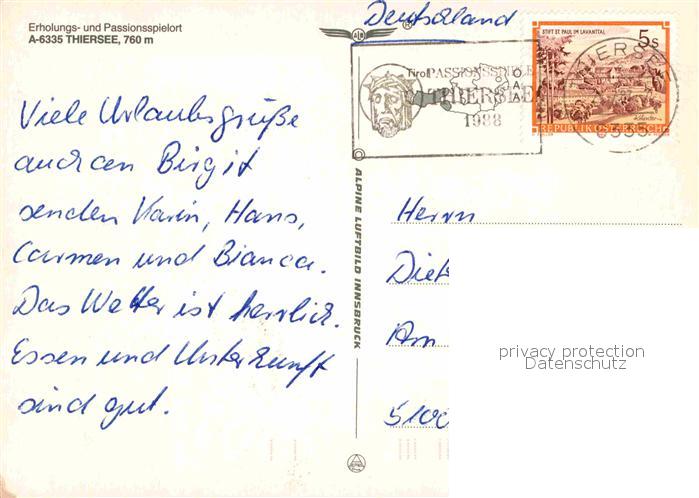 Erholungs- und Passionsspielort
A-6335 THIERSEE, 760 m
Viele Urlaubsgrüße
auch an Birgit
senden Karin, Hans,
Carmen und Bianca.
Das Wetter ist herrlich.
Essen und Unterkunft
sind gut.
ALPINE LUFTBILD INNSBRUCK
Deutschland
Tirol PASSIONSSPIELE
THIERSEE
1988
STIFT ST. PAUL IM LAVANTTAL
5s
REPUBLIK ÖSTERREICH
THIERSEE
Herrn
Diet
Am
5100
privacy protection
Datenschutz